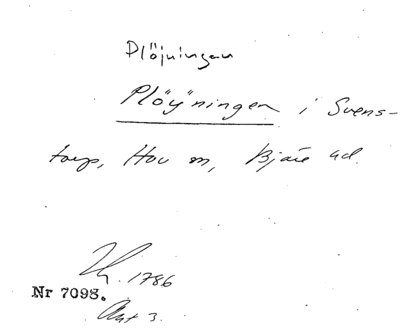 Plöjningen
Plöÿningen i Svens-
torp, Hov sn, Bjäre hd.
1786
Nr 7098.
Akt 3.